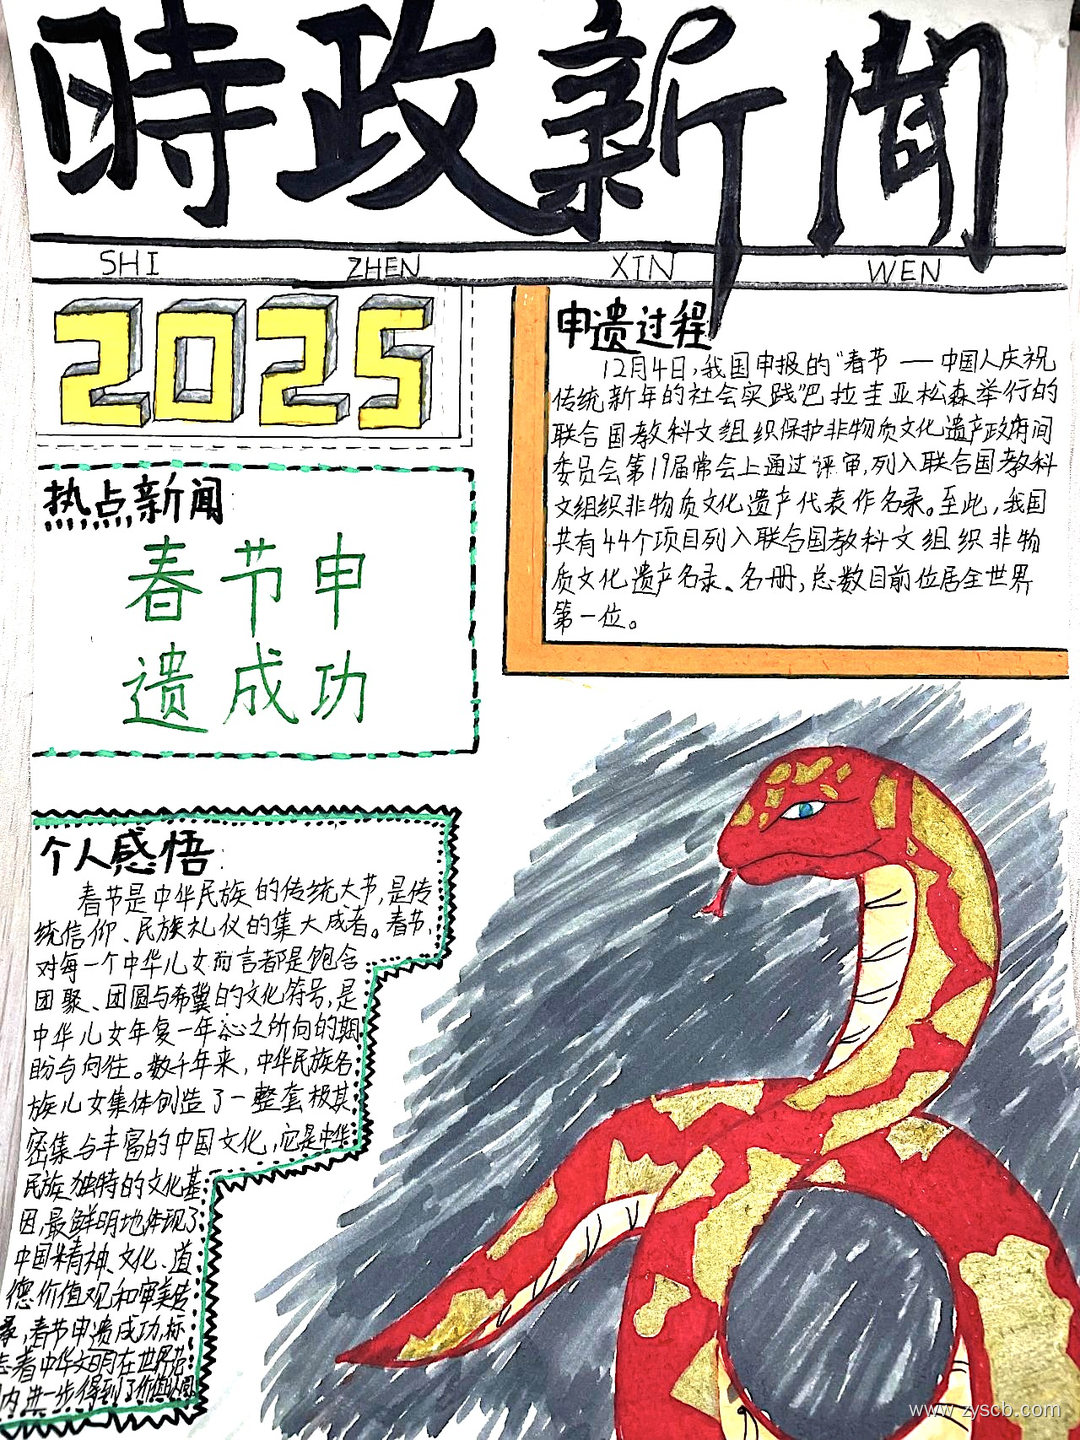 時政新聞
SHI ZHEN XIN WEN
2025
热点新闻
春节申
遗成功
申遗过程
12月4日,我国申报的“春节——中国人庆祝
传统新年的社会实践”巴拉圭亚松森举行的
联合国教科文组织保护非物质文化遗产政府间
委员会第19届常会上通过评审,列入联合国教科
文组织非物质文化遗产代表作名录。至此,我国
共有44个项目列入联合国教科文组织非物
质文化遗产名录、名册,总数目前位居全世界
第一位。
个人感悟:
春节是中华民族的传统大节,是传
统信仰、民族礼仪的集大成者。春节,
对每一个中华儿女而言都是饱含
团聚、团圆与希冀的文化符号,是
中华儿女年复一年心之所向的期
盼与向往。数千年来,中华民族各
族儿女集体创造了一整套极其
密集与丰富的中国文化,它是中华
民族独特的文化基
因,最鲜明地体现了
中国精神、文化、道
德价值观和审美传
承,春节申遗成功,标
志着中华文明在世界范
内进一步得到了
www.zyscb.com